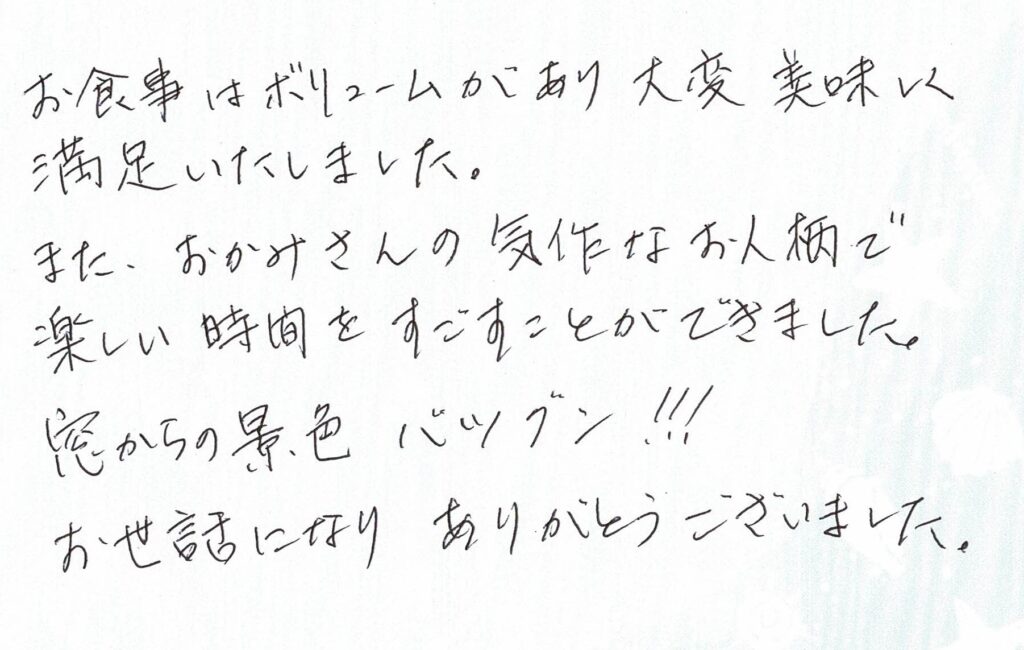 お食事はボリュームがあり 大変 美味しく
満足いたしました。
また、おかみさんの気作なお人柄で
楽しい時間をすごすことができました。
窓からの景色 バツグン!!!
お世話になり ありがとうございました。